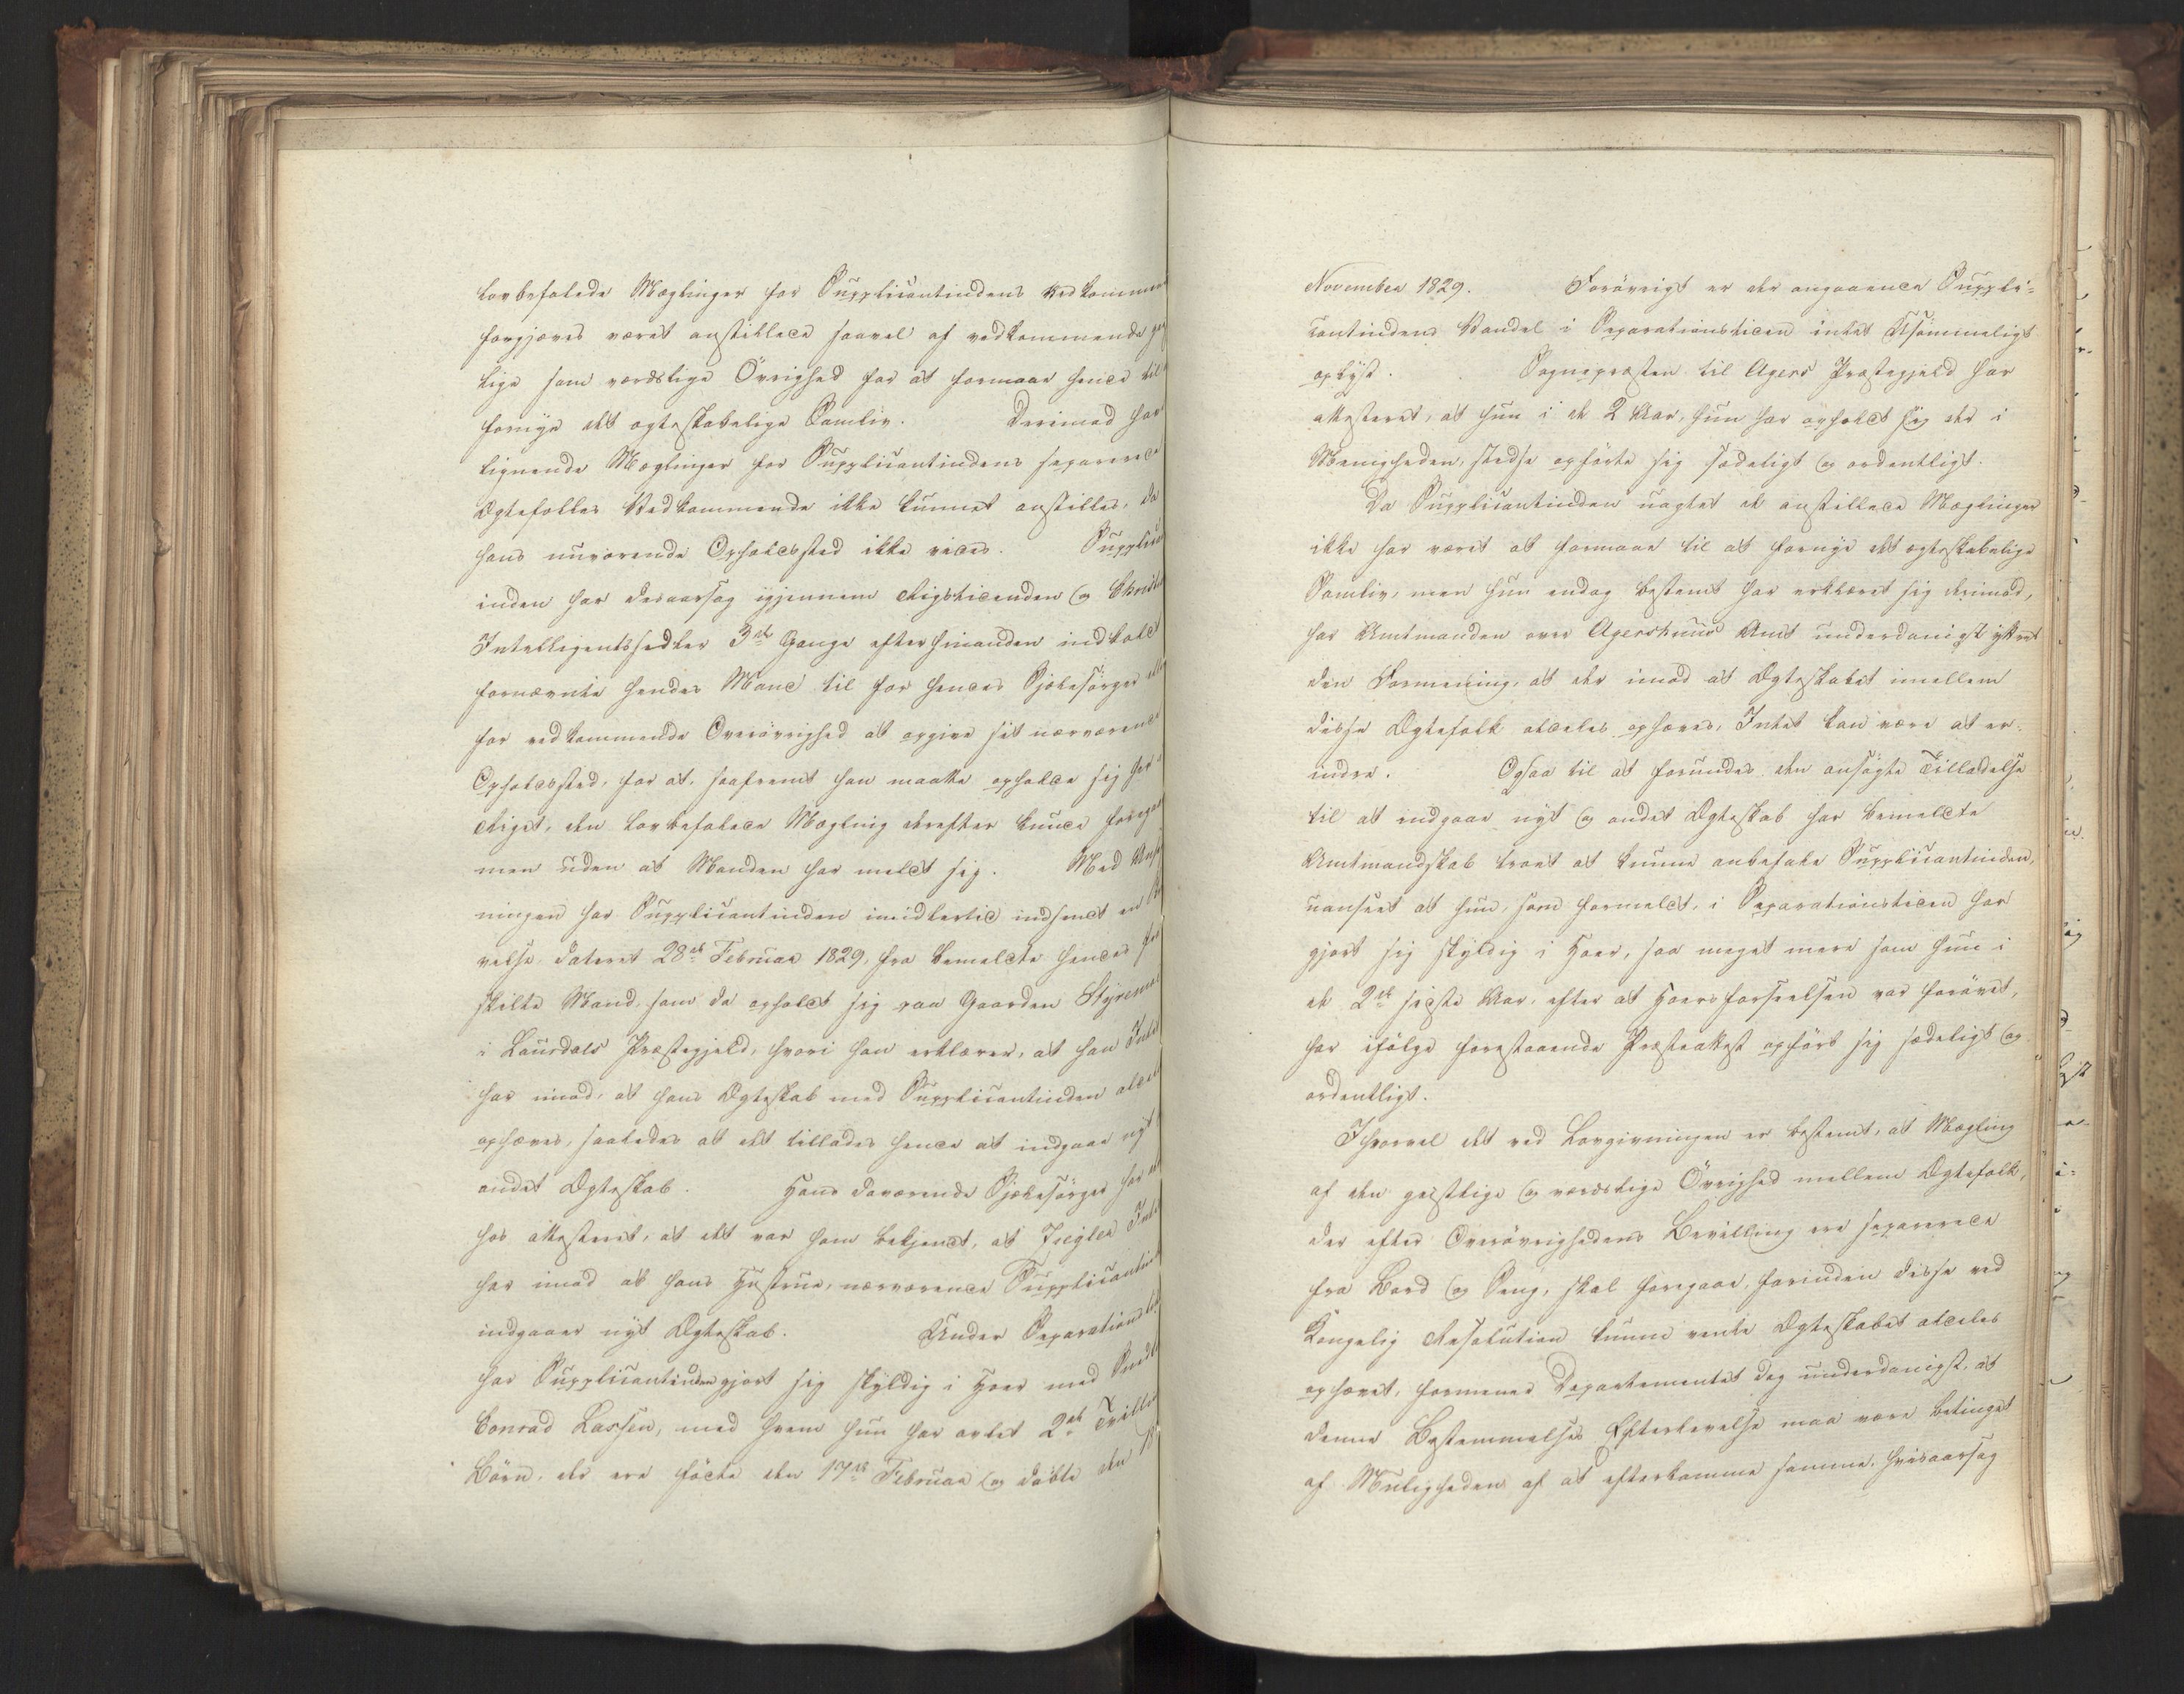 lovbefalede Mæglinger for Supplicantindens Vedkommen
forgjæves været anstillede saavel af vedkommende
lige som verdslige Övrighed for at formaae hende til
fornye det ægteskabelige Samliv. Derimod har
lignende Mæglinger for Supplicantindens separerede
Ægtefolles Vedkommende ikke kunnet anstilles, da
hans nuværende Opholdssted ikke vides. Supplica
inden har desaarsag igjennem Rigstidenden og
Intelligentssedler 3de Gange efter hinanden indkald
fornævnte hendes Mand til for hendes Sjælesörger
for vedkommende Overövrighed at opgive sit nærværende
Opholdssted, for at, saafremt han maatte opholde sig her i
Riget, den lovbefalede Mægling derefter kunde foregaa
men uden at Manden har meldt sig. Med Ansö
ningen har Supplicantinden imidlertid indsendt en
velse, dateret 28de Februar 1829, fra bemeldte hendes fra
skilte Mand, som da opholdt sig paa Gaarden
i Laurdals Præstegjeld, hvori han erklærer, at han Intet
har imod, at hans Ægteskab med Supplicantinden aldeles
ophæves, saaledes at det tillades hende at indgaae nyt
andet Ægteskab. Hans daværende Sjælesörger har
hos attesteret, at det var ham bekjendt, at Ziegler Intet
har imod at hans Hustrue, nærværende Supplicantinde
indgaaer nyt Ægteskab. Under Separations
har Supplicantinden gjort sig skyldig i Hoer med
Conrad Lassen, med hvem hun har avlet 2de Tvilling
Börn, der ere födte den 17de Februar og döbte den
November 1829. Forövrigt er der angaaende Suppli-
cantindens Vandel i Separationstiden intet Usömmeligt
oplyst. Sognepræsten til Agers Præstegjeld har
attesteret, at hun i de 2 Aar, hun har opholdt sig der i
Menigheden, stedse opförte sig sædeligt og ordentligt.
Da Supplicantinden uagtet de anstillede Mæglinger
ikke har været at formaae til at fornye det ægteskabelige
Samliv, men hun endog bestemt har erklæret sig derimod,
har Amtmanden over Agershuus Amt underdanigst yttret
den Formening, at der imod at Ægteskabet imellem
disse Ægtefolk aldeles ophæves, Intet kan være at er-
indre. Ogsaa til at forundes den ansögte Tilladelse
til at indgaae nyt og andet Ægteskab har bemeldte
Amtmandskab troet at kunne anbefale Supplicantinden,
uanseet at hun, som formeldt, i Separationstiden har
gjort sig skyldig i Hoer, saa meget mere som hun i
de 2de sidste Aar, efter at Hoersforseelsen var forövet,
har ifölge forestaaende Præsteattest opfört sig sædeligt og
ordentligt.
Ihvorvel det ved Lovgivningen er bestemt, at Mægling
af den geistlige og verdslige Övrighed mellem Ægtefolk,
der efter Overövrighedens Bevilling ere separerede
fra Bord og Seng, skal foregaae, forinden disse ved
Kongelig Resolution kunne vente Ægteskabet aldeles
ophævet, formener Departementet dog underdanigst, at
denne Bestemmelses Efterlevelse maa være betinget
af Muligheden af at efterkomme samme, hvisaarsag